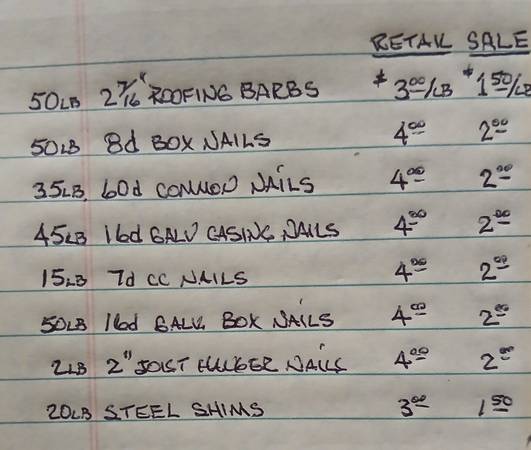 RETAIL SALE
50LB 2 7/16" ROOFING BARBS $3.00/LB $1.50/LB
50LB 8d BOX NAILS 4.00 2.00
35LB. 60d COMMON NAILS 4.00 2.00
45LB 16d GALV CASING NAILS 4.00 2.00
15LB 7d CC NAILS 4.00 2.00
50LB 16d GALV. BOX NAILS 4.00 2.00
2LB 2" JOIST HANGER NAILS 4.00 2.00
20LB STEEL SHIMS 3.00 1.50